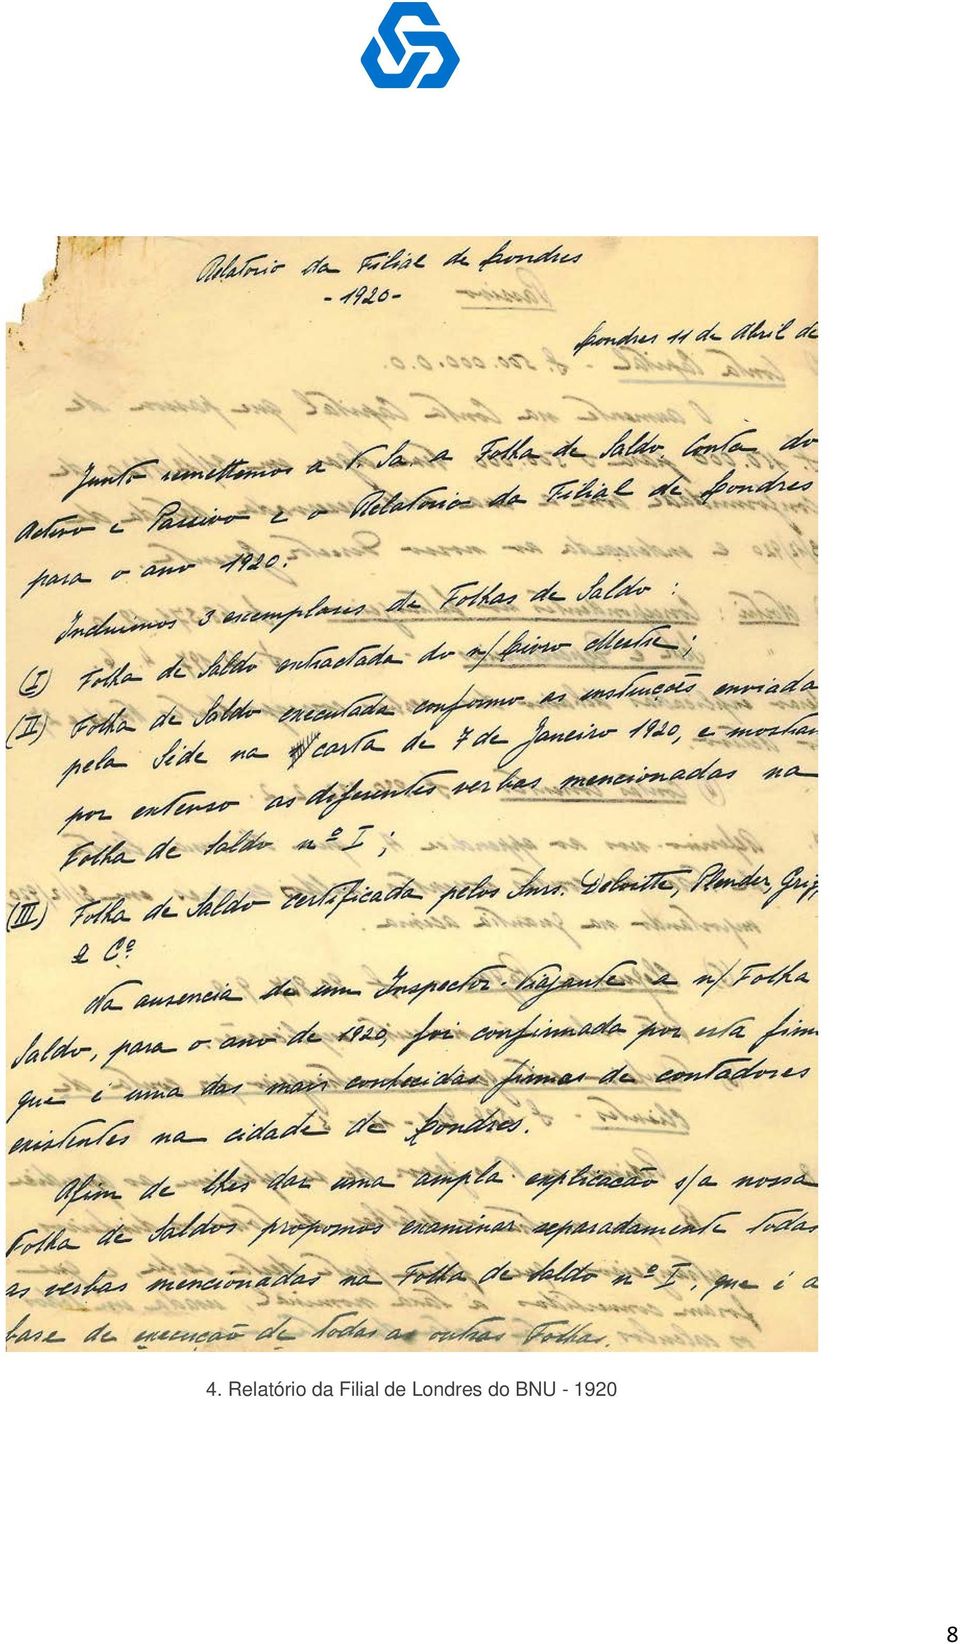 Relatorio da Filial de Londres
- 1920 -
Londres 11 de Abril de
Junto remettemos a V. Sa. a Folha de Saldo, Conta do
Activo e Passivo e o Relatorio da Filial de Londres
para o ano 1920.
Incluimos 3 exemplares de Folhas de Saldo :
(I) Folha de Saldo extractada do n/ Livro Mestre ;
(II) Folha de Saldo executada conformo as instruções enviada
pela Séde na carta de 7 de Janeiro 1920, e mostran
por extenso as diferentes verbas mencionadas na
Folha de Saldo nº I ;
(III) Folha de Saldo certificada pelos Snrs. Deloitte, Plender, Grif,
& Cº.
Na ausencia de um Inspector-Viajante a n/ Folha
Saldo, para o ano de 1920, foi confirmada por esta firm
que é uma das mais conhecidas firmas de contadores
existentes na cidade de Londres.
Afim de lhes dar uma ampla explicacão s/a nossa
Folha de Saldos propomos examinar separadamente todas
as verbas mencionadas na Folha de Saldo nº I, que é a
base de execução de todas as outras Folhas.
4. Relatório da Filial de Londres do BNU - 1920
8